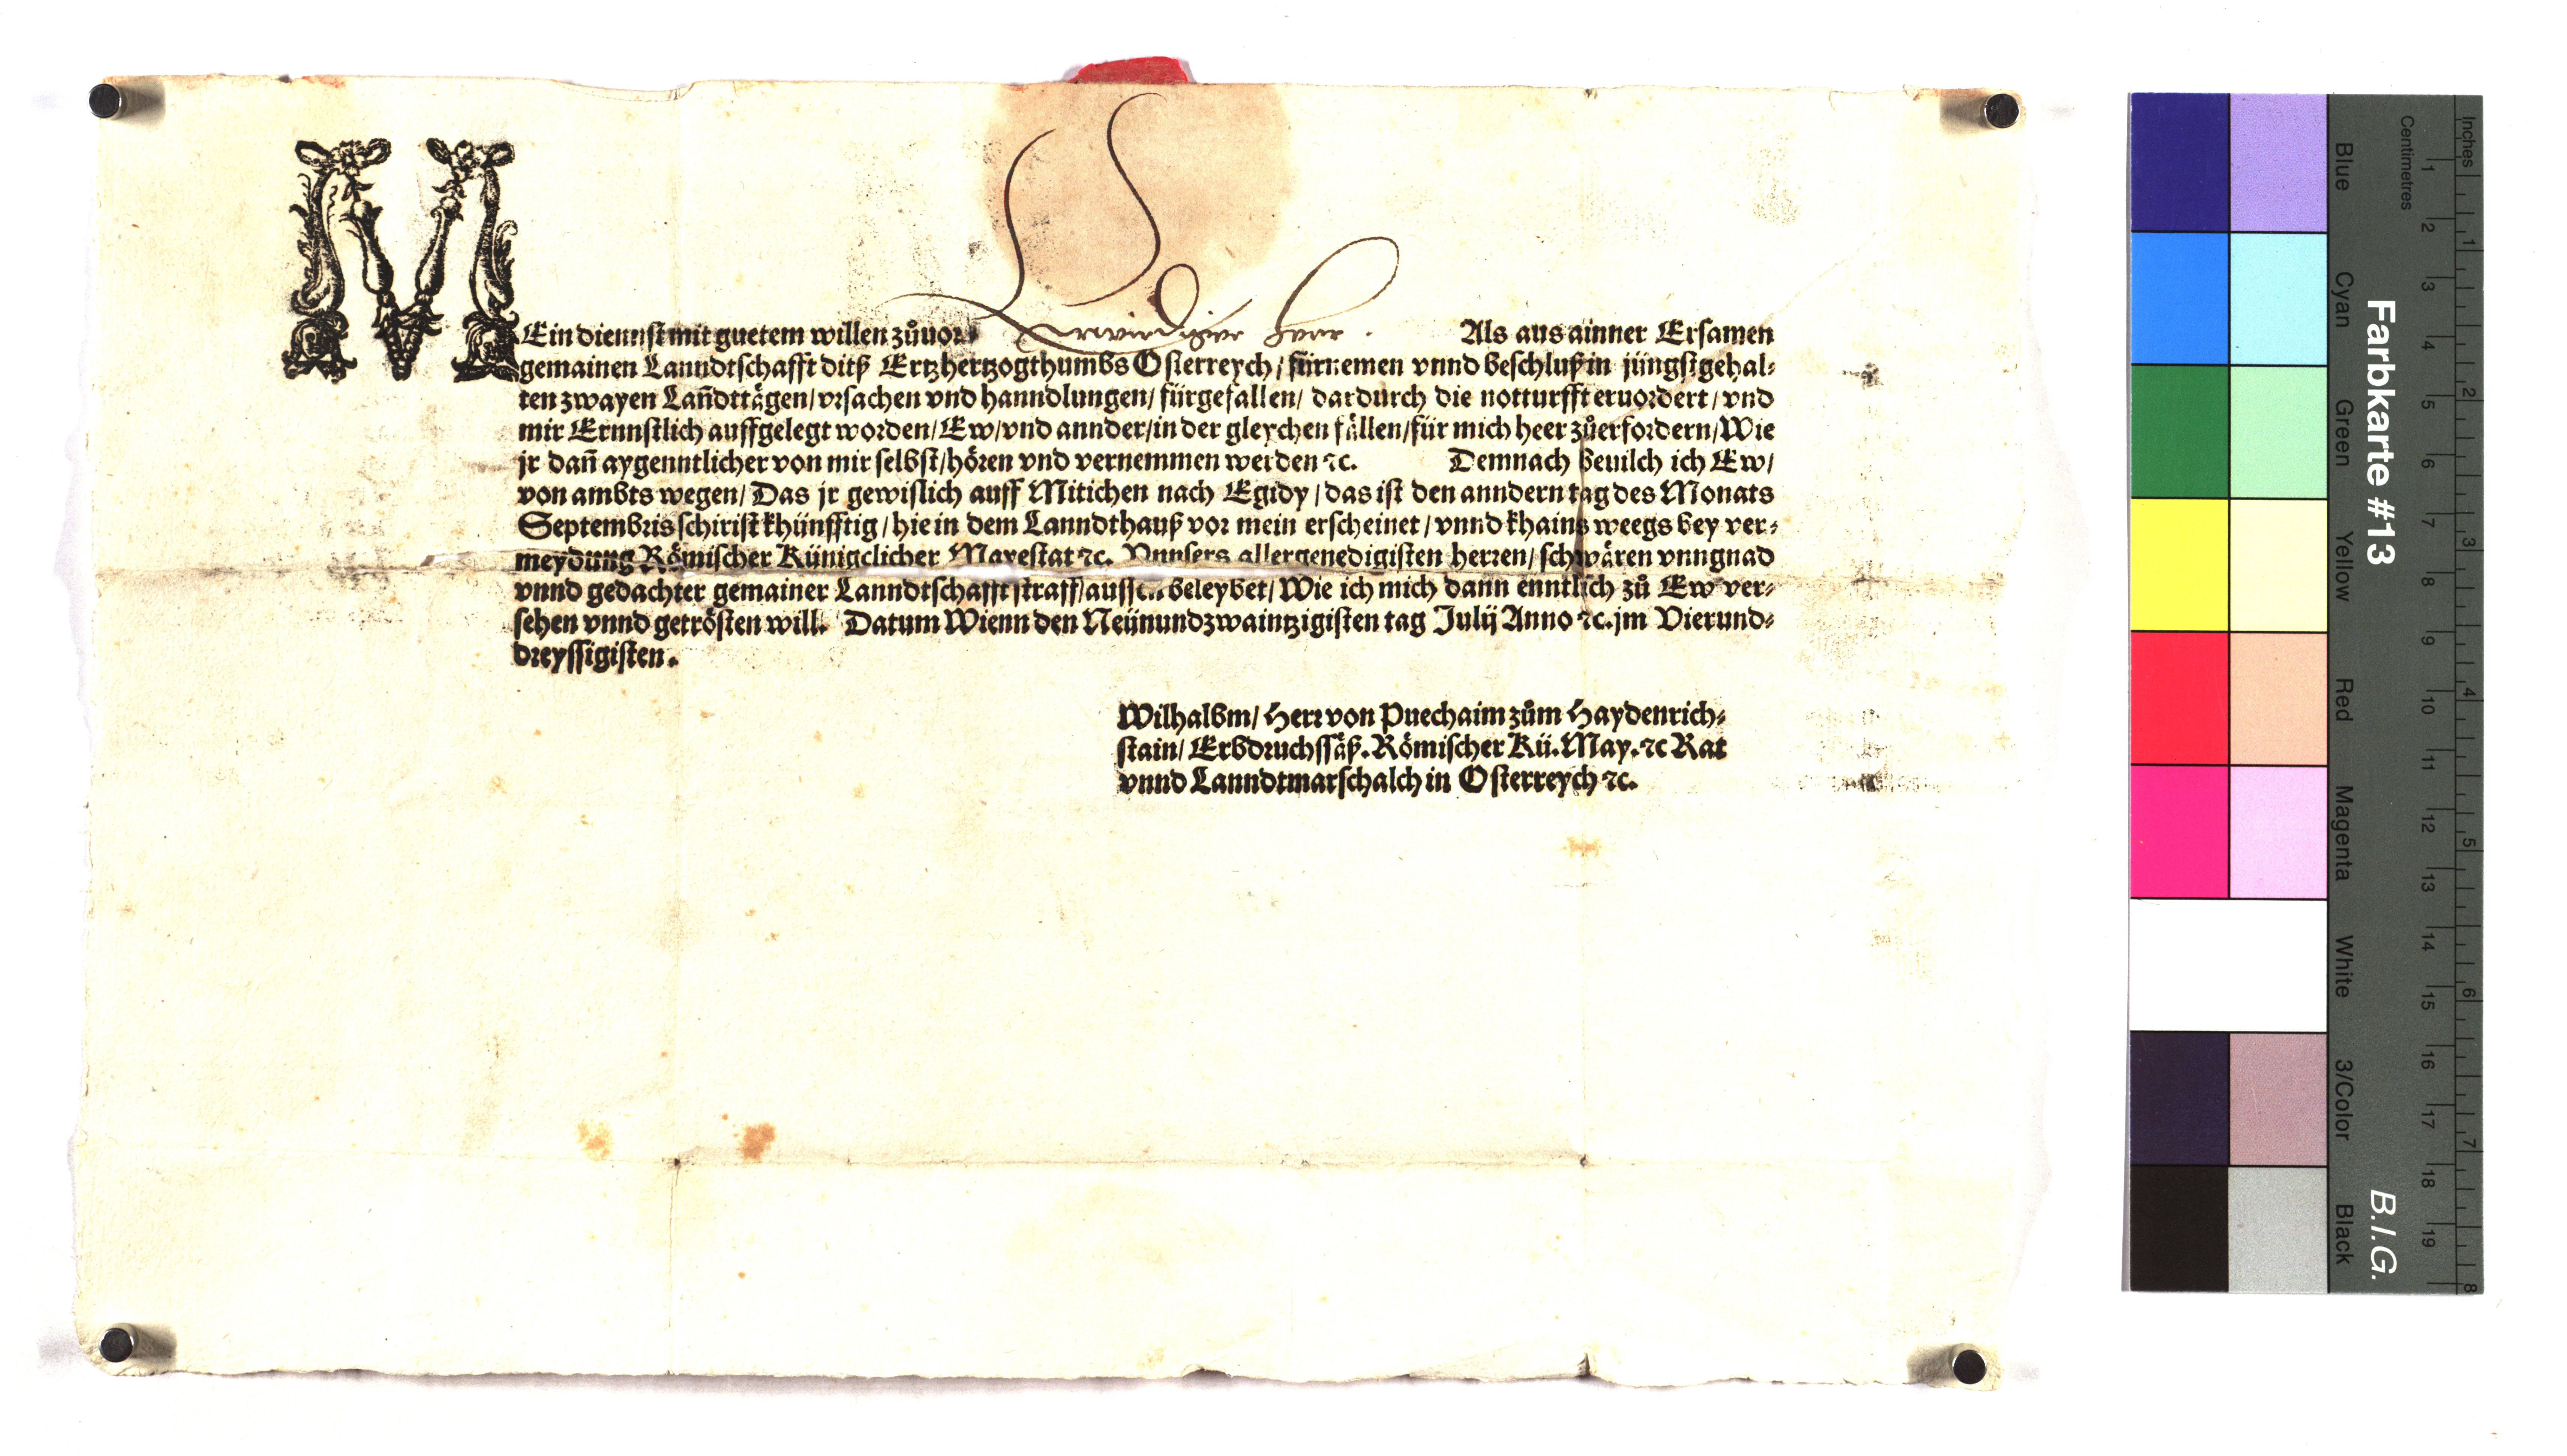 MEin diennst mit guetem willen zůuor. Erwirdiger Herr. Als aus ainner Ersamen
gemainen Lanndtschafft ditß Ertzhertzogthumbs Osterreych / fürnemen vnnd beschluß in jüngstgehal-
ten zwayen Lañdttägen / vrsachen vnd hanndlungen / fürgefallen / dardurch die notturfft eruordert / vnd
mir Ernnstlich auffgelegt worden / Ew / vnd annder / in der gleychen fällen / für mich heer zůerfordern / Wie
jr dañ aygenntlicher von mir selbst / hören vnd vernemmen werden ꝛc. Demnach beuilch ich Ew /
von ambts wegen / Das jr gewislich auff Mitichen nach Egidy / das ist den anndern tag des Monats
Septembris schirist khünfftig / hie in dem Lanndthauß vor mein erscheinet / vnnd khains weegs bey ver-
meydung Römischer Künigclicher Mayestat ꝛc. Vnnsers allergenedigisten herren / schwären vnngnad
vnnd gedachter gemainer Lanndtschafft straff / aussen beleybet / Wie ich mich dann enntlich zů Ew ver-
sehen vnnd getrösten will. Datum Wienn den Neünundzwaintzigisten tag Julij Anno ꝛc. jm Vierund-
dreyssigisten.
Wilhalbm / Herr von Puechaim zům Haydenrich-
stain / Erbdruchssäß. Römischer Kü. May. ꝛc Rat
vnnd Lanndtmarschalch in Osterreych ꝛc.
Inches
Centimetres
1 2 3 4 5 6 7 8
1 2 3 4 5 6 7 8 9 10 11 12 13 14 15 16 17 18 19
Farbkarte #13
B.I.G.
Blue
Cyan
Green
Yellow
Red
Magenta
White
3/Color
Black